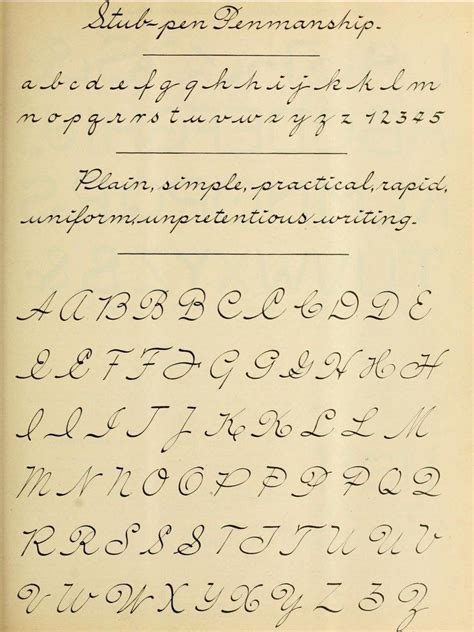 Stub-pen Penmanship.
a b c d e f g g h h i j k k l m
n o p q r r s t u v w x y z z 1 2 3 4 5
Plain, simple, practical, rapid,
uniform, unpretentious writing.
A A B B B C C C D D E
E E F F F G G G H H H
I I I I J K K L L M
M N N O O P P P P Q Q
R R S S S T T T U U V
V W W X Y X Y Z Z Z